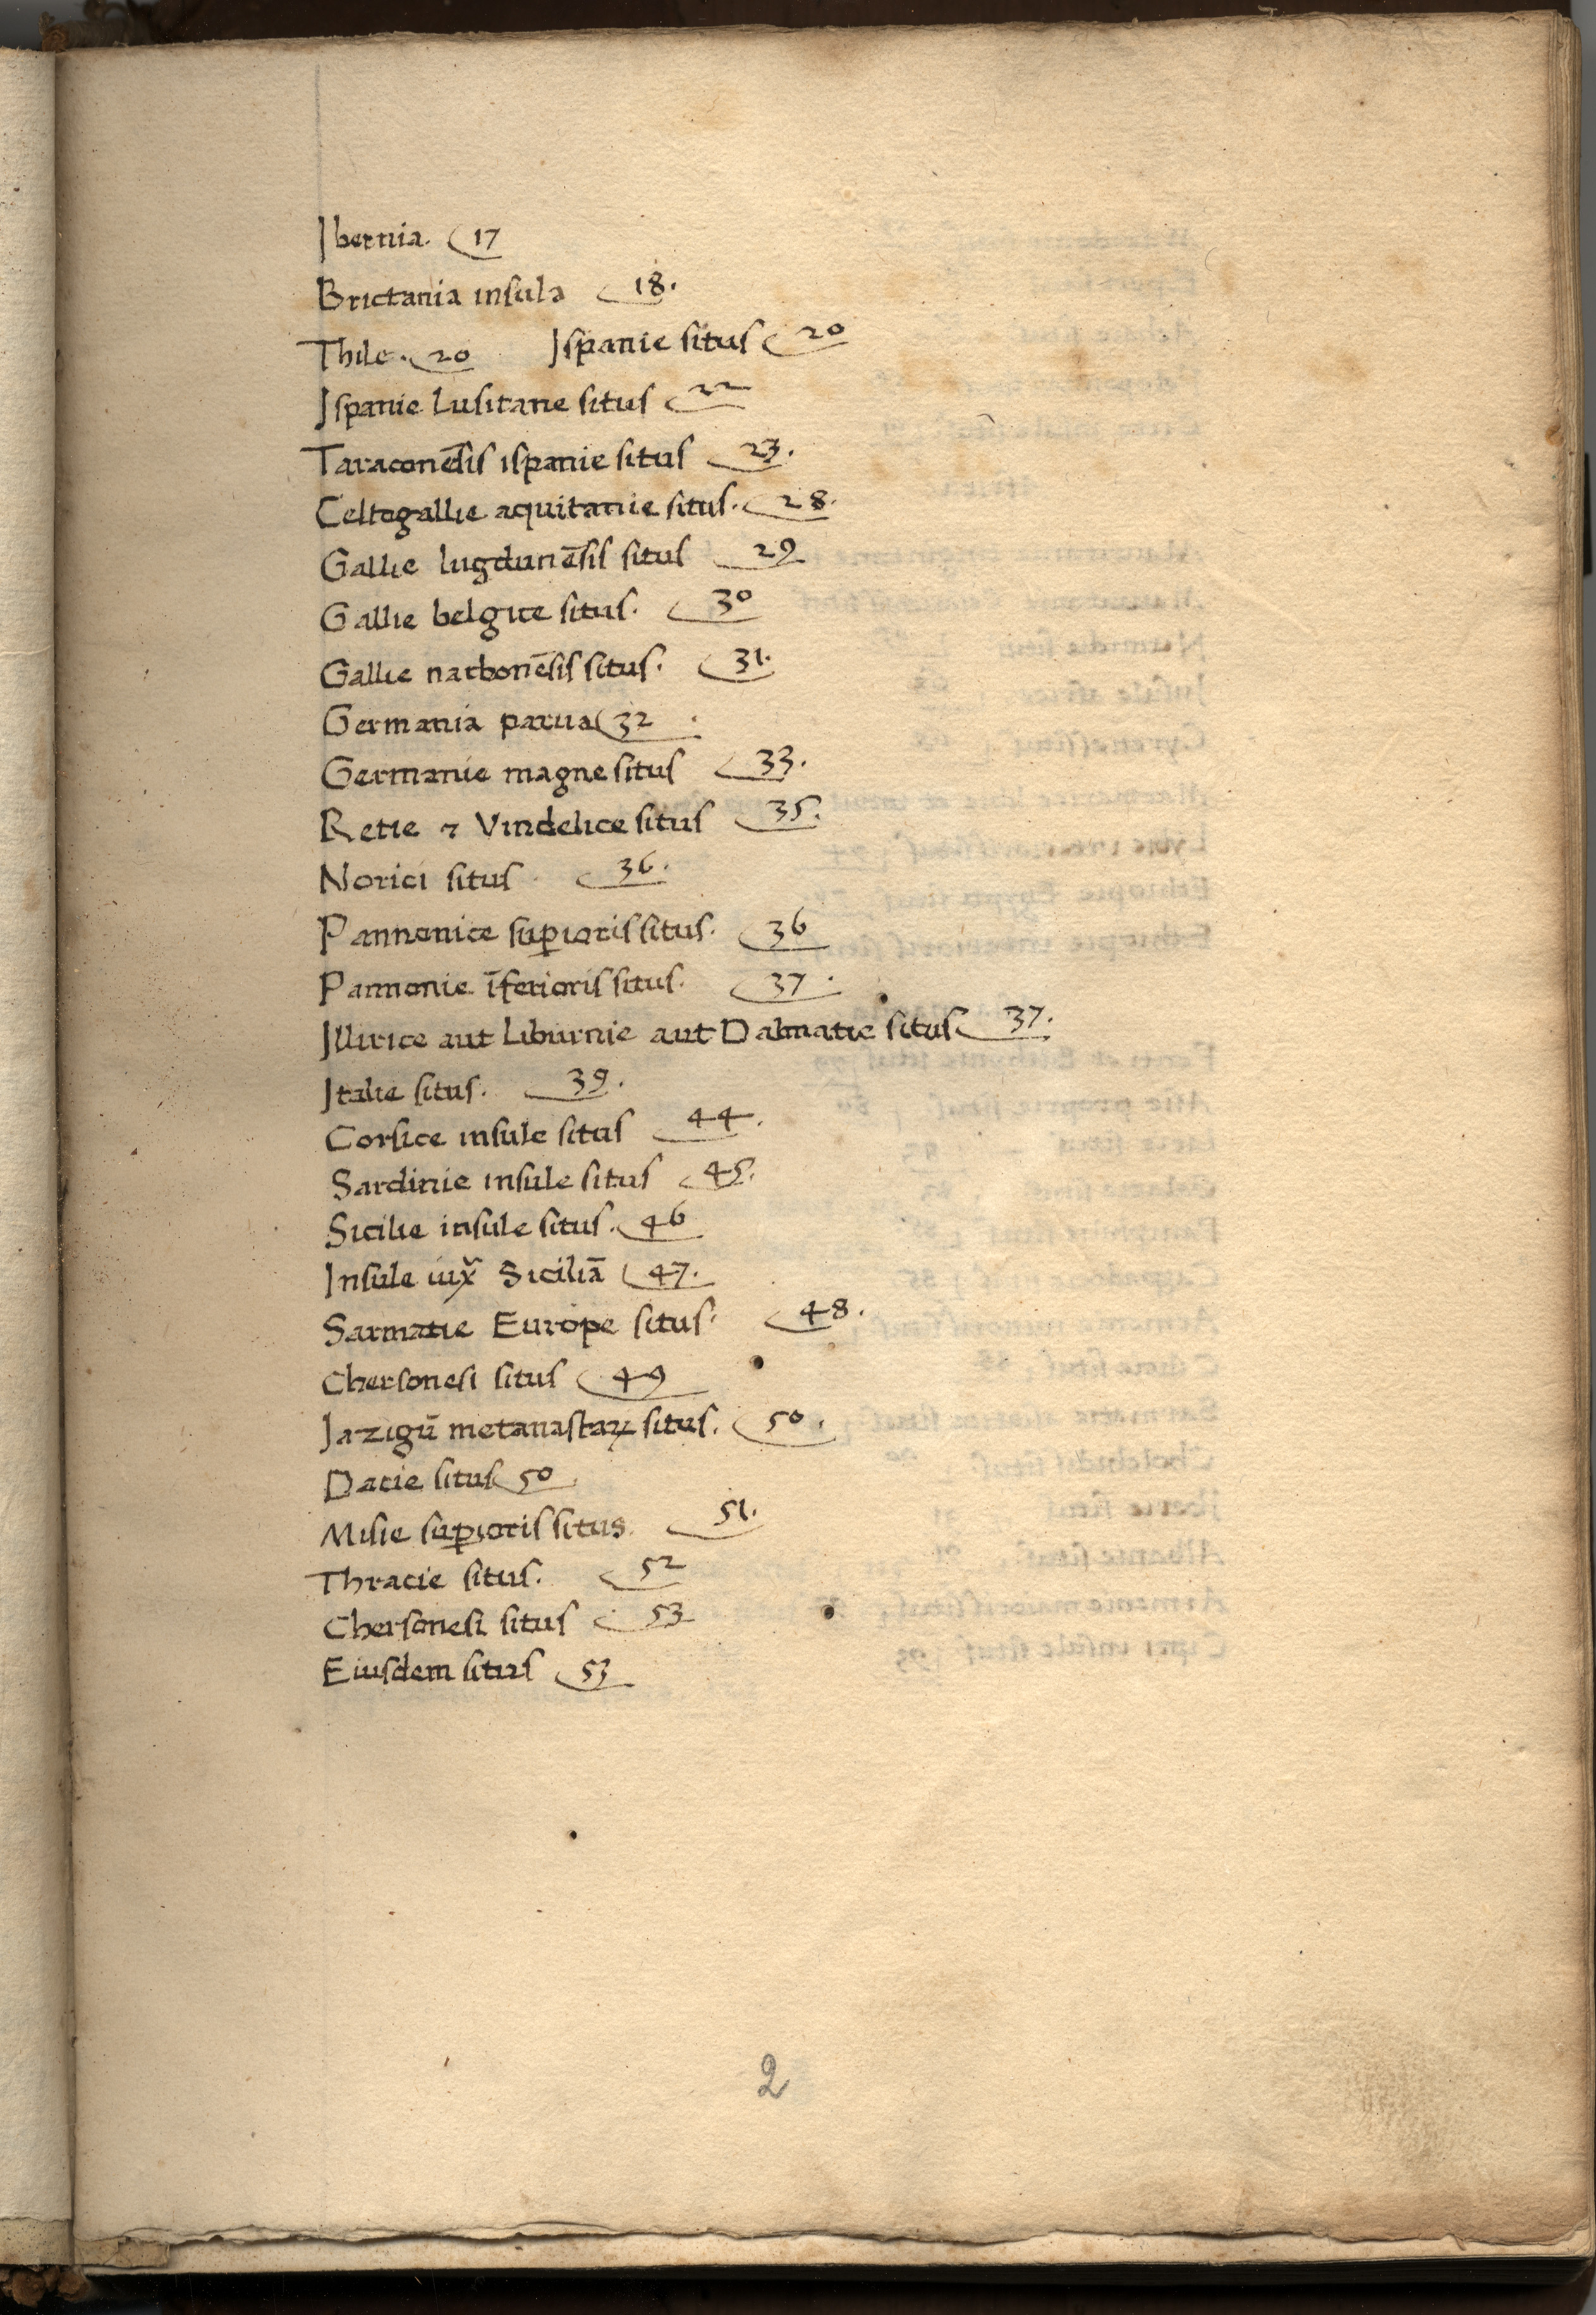 Ibernia. 17
Brictania insula 18.
Thile. 20 Ispanie situs 20
Ispanie Lusitanie situs 22
Taraconēsis ispanie situs 23.
Celtogallie aquitanie situs. 28.
Gallie lugdunēsis situs 29
Gallie belgice situs. 30
Gallie narbonēsis situs. 31.
Germania parua 32
Germanie magne situs 33.
Retie ⁊ Vindelice situs 35.
Norici situs 36.
Pannonice suꝑioris situs. 36
Pannonie īferioris situs. 37.
Illirice aut Liburnie aut Dalmatie situs 37.
Italie situs. 39.
Corsice insule situs 44.
Sardinie insule situs 45.
Sicilie insule situs. 46
Insule iux̃ Siciliā 47.
Sarmatie Europe situs. 48.
Chersonesi situs 49
Jazigū metanastaꝝ situs. 50.
Dacie situs 50
Misie suꝑioris situs. 51.
Thracie situs. 52
Chersonesi situs 53
Eiusdem situs 53
2